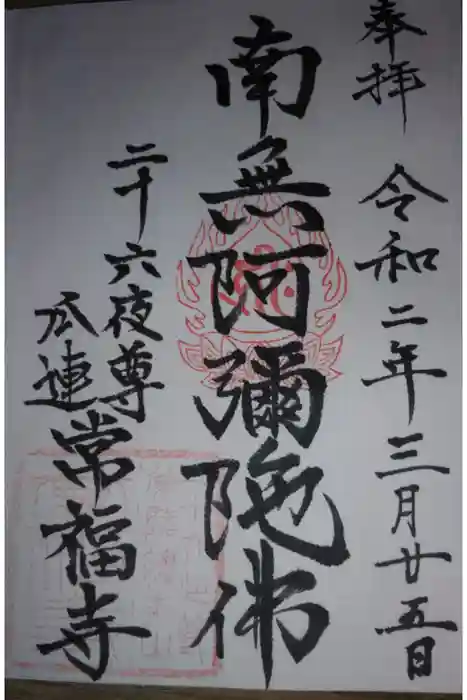 奉拝 令和二年三月廿五日
南無阿彌陀佛
二十六夜尊
瓜連
常福寺